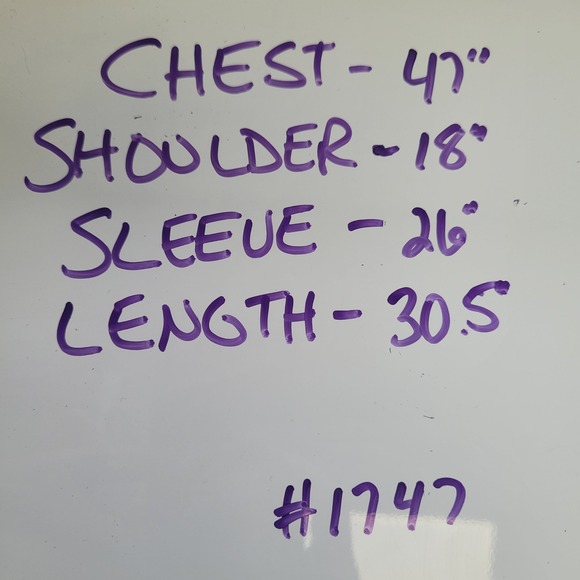 CHEST - 47"
SHOULDER - 18"
SLEEVE - 26"
LENGTH - 30.5"
#1747